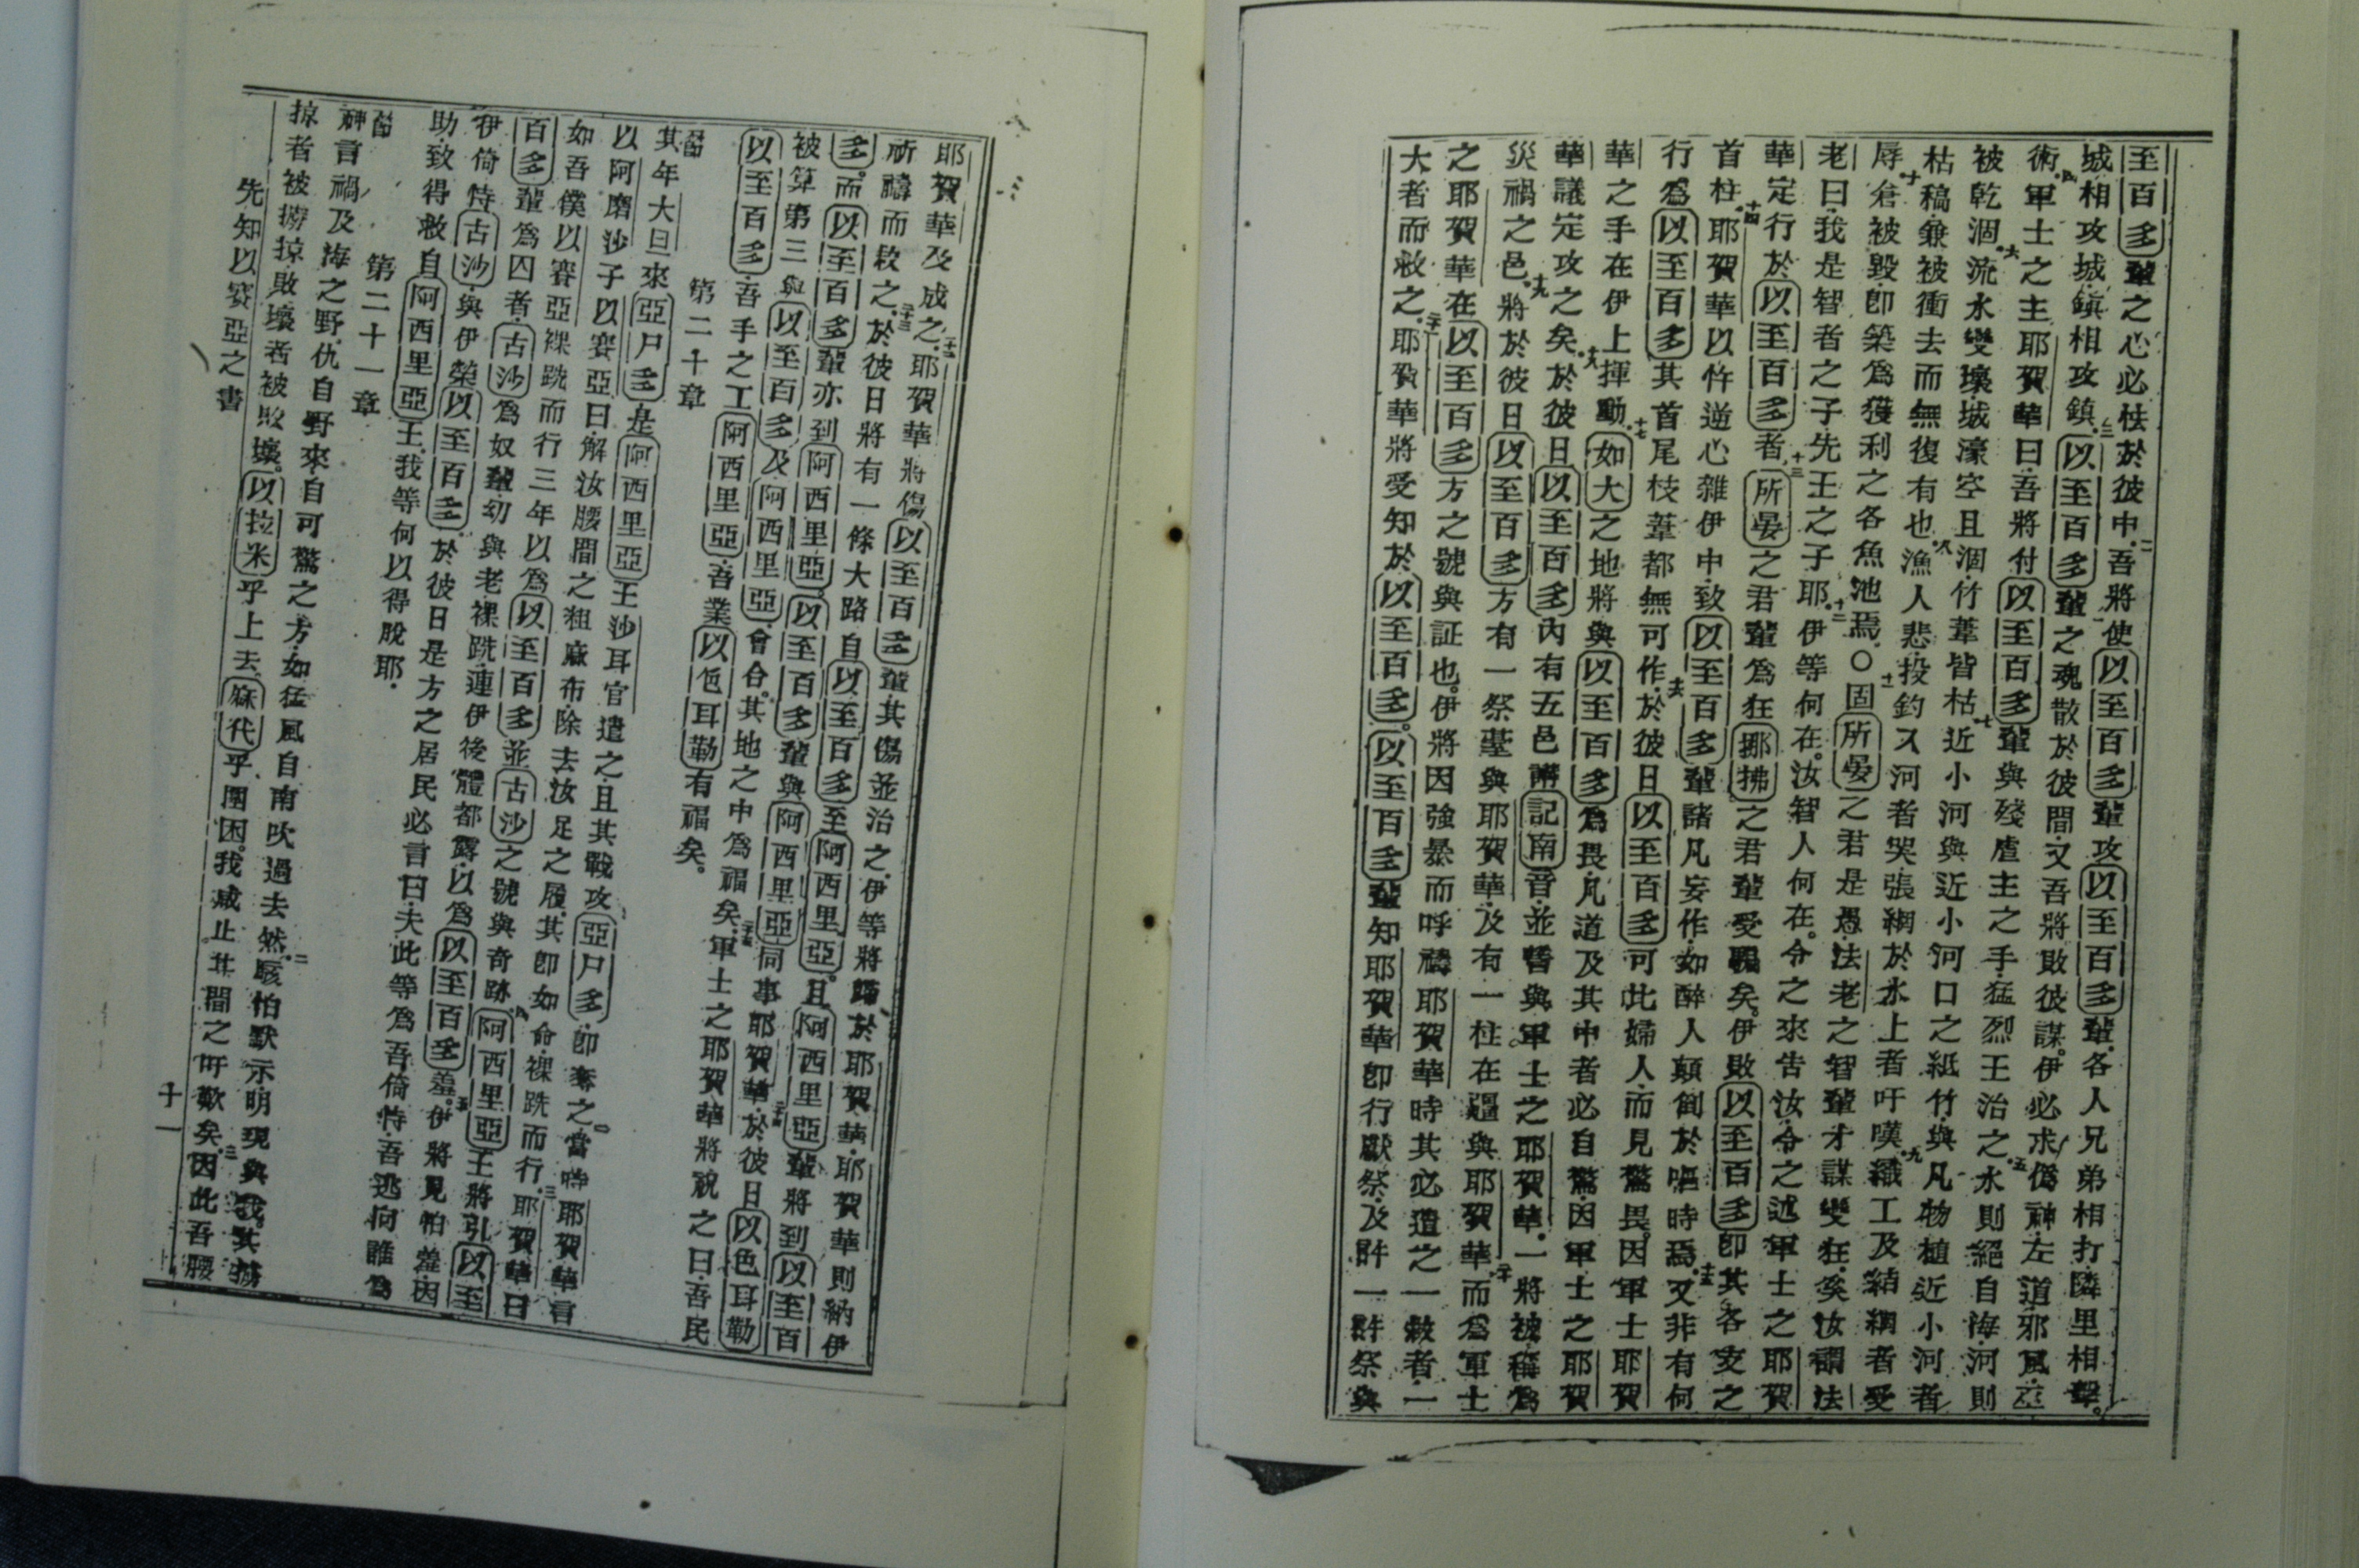 至百多輩之心必怯於彼中二吾將使以至百多輩攻以至百多輩各人兄弟相打隣里相擊
城相攻城鎮相攻鎮三以至百多輩之魂散於彼間又吾將敗彼謀伊必求偽神左道邪風巫
術四軍士之主耶賀華曰吾將付以至百多輩與殘虐主之手猛烈王治之五水則絕自海河則
被乾涸六流水變壞城濠空且涸竹葦皆枯七近小河與近小河口之紙竹與凡物植近小河者
枯稿兼被衝去而無復有也八漁人悲投釣入河者哭張網於水上者吁嘆九織工及結網者受
辱十倉被毀卽築為獲利之各魚池焉〇十一固所晏之君是愚法老之智輩才謀變狂奚汝謂法
老曰我是智者之子先王之子耶十二伊等何在汝智人何在令之來告汝令之述軍士之耶賀
華定行於以至百多者十三所晏之君輩為狂挪拂之君輩受騙矣伊敗以至百多卽其各支之
首柱十四耶賀華以忤逆心雜伊中致以至百多輩諸凡妄作如醉人顛倒於嘔時焉十五又非有何
行為以至百多其首尾枝葦都無可作十六於彼日以至百多可此婦人而見驚畏因軍士耶賀
華之手在伊上揮動十七如大之地將與以至百多為畏凡道及其中者必自驚因軍士之耶賀
華議定攻之矣十八於彼日以至百多內有五邑講記南音並誓與軍士之耶賀華一將被稱為
災禍之邑十九將於彼日以至百多方有一祭臺與耶賀華及有一柱在疆與耶賀華二十而為軍士
之耶賀華在以至百多方之號與証也伊將因強暴而呼禱耶賀華時其必遣之一救者一
大者而救之二十一耶賀華將受知於以至百多以至百多輩知耶賀華卽行獻祭及許一許祭與
耶賀華及成之二十二耶賀華將傷以至百多輩其傷並治之伊等將歸於耶賀華耶賀華則納伊
祈禱而救之二十三於彼日將有一條大路自以至百多至阿西里亞且阿西里亞輩將到以至百
多而以至百多輩亦到阿西里亞以至百多輩與阿西里亞同事耶賀華二十四於彼日以色耳勒
被算第三與以至百多及阿西里亞會合其地之中為福矣二十五軍士之耶賀華將祝之曰吾民
以至百多吾手之工阿西里亞吾業以色耳勒有福矣
第二十章
其年大旦來亞尸多是阿西里亞王沙耳官遣之且其戰攻亞尸多卽奪之二當時耶賀華言
以阿磨沙子以賽亞曰解汝腰間之粗麻布除去汝足之履其卽如命裸跣而行三耶賀華曰
如吾僕以賽亞裸跣而行三年以為以至百多並古沙之號與奇跡四阿西里亞王將引以至
百多輩為囚者古沙為奴輩幼與老裸跣連伊後體都露以為以至百多羞五伊將見怕羞因
伊倚恃古沙與伊榮以至百多於彼日是方之居民必言曰夫此等為吾倚恃吾逃向誰為
助致得救自阿西里亞王我等何以得脫耶
第二十一章
神言禍及海之野仇自野來自可驚之方如猛風自南吹過去然二駭怕默示明現與我其擄
掠者被擄掠敗壞者被敗壞以拉米乎上去麻代乎圍困我咸止其間之吁歎矣三因此吾腰
先知以賽亞之書
十一